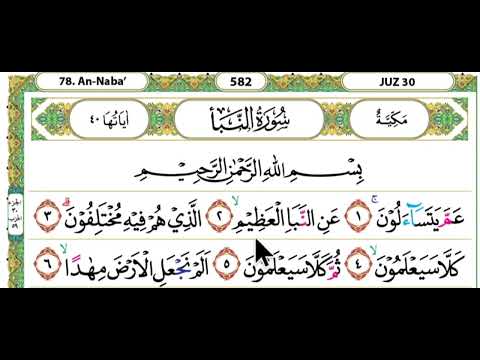 78. An-Naba' 582 JUZ 30
مَكِيَّةٌ سُورَةُ النَّبَأِ اٰيَاتُهَا ٤٠
بِسْمِ اللهِ الرَّحْمٰنِ الرَّحِيْمِ
عَمَّ يَتَسَاۤءَلُوْنَۚ ١ عَنِ النَّبَاِ الْعَظِيْمِۙ ٢ الَّذِيْ هُمْ فِيْهِ مُخْتَلِفُوْنَۗ ٣
كَلَّا سَيَعْلَمُوْنَۙ ٤ ثُمَّ كَلَّا سَيَعْلَمُوْنَ ٥ اَلَمْ نَجْعَلِ الْاَرْضَ مِهٰدًاۙ ٦